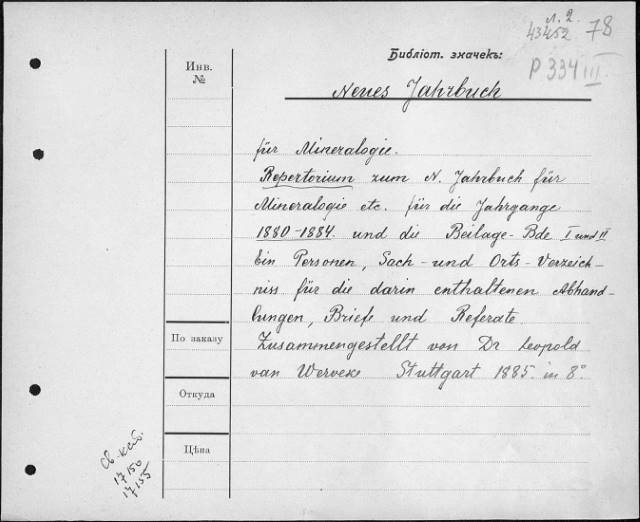 л. 2.
43452 78
Библіот. значекъ:
P 334 III
Инв.
№
Neues Jahrbuch
für Mineralogie.
Repertorium zum N. Jahrbuch für
Mineralogie etc. für die Jahrgänge
1880-1884. und die Beilage-Bde I und II
Ein Personen, Sach- und Orts-Verzeich-
niss für die darin enthaltenen Abhand-
lungen, Briefe und Referate.
Zusammengestellt von Dr Leopold
van Werveke Stuttgart 1885. in 8°.
По заказу
Откуда
Цѣна
17150
17155